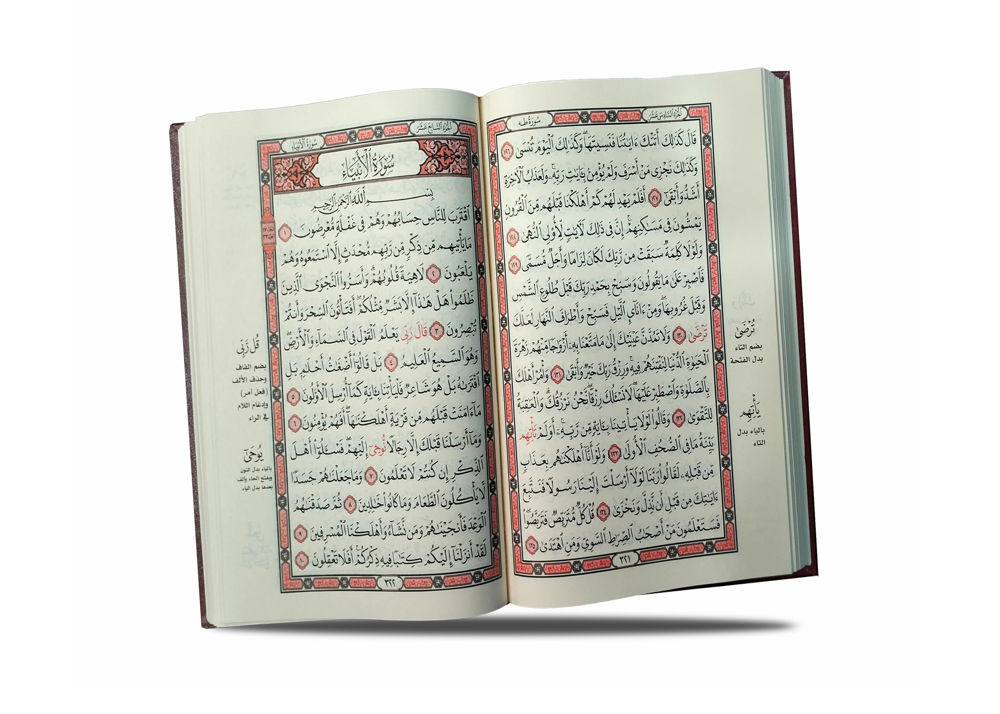 الجُزْءُ السَّادِسَ عَشَرَ
سُورَةُ طه
قَالَ كَذَٰلِكَ أَتَتْكَ ءَايَٰتُنَا فَنَسِيتَهَا ۖ وَكَذَٰلِكَ ٱلْيَوْمَ تُنسَىٰ ١٢٦
وَكَذَٰلِكَ نَجْزِى مَنْ أَسْرَفَ وَلَمْ يُؤْمِنۢ بِـَٔايَٰتِ رَبِّهِۦ ۚ وَلَعَذَابُ ٱلْءَاخِرَةِ
أَشَدُّ وَأَبْقَىٰٓ ١٢٧ أَفَلَمْ يَهْدِ لَهُمْ كَمْ أَهْلَكْنَا قَبْلَهُم مِّنَ ٱلْقُرُونِ
يَمْشُونَ فِى مَسَٰكِنِهِمْ ۗ إِنَّ فِى ذَٰلِكَ لَءَايَٰتٍ لِّأُو۟لِى ٱلنُّهَىٰ ١٢٨
وَلَوْلَا كَلِمَةٌ سَبَقَتْ مِن رَّبِّكَ لَكَانَ لِزَامًا وَأَجَلٌ مُّسَمًّى ١٢٩
فَٱصْبِرْ عَلَىٰ مَا يَقُولُونَ وَسَبِّحْ بِحَمْدِ رَبِّكَ قَبْلَ طُلُوعِ ٱلشَّمْسِ
وَقَبْلَ غُرُوبِهَا ۖ وَمِنْ ءَانَآئِ ٱلَّيْلِ فَسَبِّحْ وَأَطْرَافَ ٱلنَّهَارِ لَعَلَّكَ
تُرْضَىٰ ١٣٠ وَلَا تَمُدَّنَّ عَيْنَيْكَ إِلَىٰ مَا مَتَّعْنَا بِهِۦٓ أَزْوَٰجًا مِّنْهُمْ زَهْرَةَ
ٱلْحَيَوٰةِ ٱلدُّنْيَا لِنَفْتِنَهُمْ فِيهِ ۚ وَرِزْقُ رَبِّكَ خَيْرٌ وَأَبْقَىٰ ١٣١ وَأْمُرْ أَهْلَكَ
بِٱلصَّلَوٰةِ وَٱصْطَبِرْ عَلَيْهَا ۖ لَا نَسْـَٔلُكَ رِزْقًا ۖ نَّحْنُ نَرْزُقُكَ ۗ وَٱلْعَٰقِبَةُ
لِلتَّقْوَىٰ ١٣٢ وَقَالُوا۟ لَوْلَا يَأْتِينَا بِـَٔايَةٍ مِّن رَّبِّهِۦٓ ۚ أَوَلَمْ يَأْتِهِم
بَيِّنَةُ مَا فِى ٱلصُّحُفِ ٱلْأُولَىٰ ١٣٣ وَلَوْ أَنَّآ أَهْلَكْنَٰهُم بِعَذَابٍ
مِّن قَبْلِهِۦ لَقَالُوا۟ رَبَّنَا لَوْلَآ أَرْسَلْتَ إِلَيْنَا رَسُولًا فَنَتَّبِعَ
ءَايَٰتِكَ مِن قَبْلِ أَن نَّذِلَّ وَنَخْزَىٰ ١٣٤ قُلْ كُلٌّ مُّتَرَبِّصٌ فَتَرَبَّصُوا۟ ۖ
فَسَتَعْلَمُونَ مَنْ أَصْحَٰبُ ٱلصِّرَٰطِ ٱلسَّوِىِّ وَمَنِ ٱهْتَدَىٰ ١٣٥
٣٢١
تُرْضَىٰ
بضم التاء
بدل الفتحة
يَأْتِهِم
بالياء بدل
التاء
الجُزْءُ السَّابِعَ عَشَرَ
سُورَةُ الأَنْبِيَاءِ
سُورَةُ الأَنبِيَاءِ
بِسْمِ ٱللَّهِ ٱلرَّحْمَٰنِ ٱلرَّحِيمِ
ٱقْتَرَبَ لِلنَّاسِ حِسَابُهُمْ وَهُمْ فِى غَفْلَةٍ مُّعْرِضُونَ ١
مَا يَأْتِيهِم مِّن ذِكْرٍ مِّن رَّبِّهِم مُّحْدَثٍ إِلَّا ٱسْتَمَعُوهُ وَهُمْ
يَلْعَبُونَ ٢ لَاهِيَةً قُلُوبُهُمْ ۗ وَأَسَرُّوا۟ ٱلنَّجْوَى ٱلَّذِينَ
ظَلَمُوا۟ هَلْ هَٰذَآ إِلَّا بَشَرٌ مِّثْلُكُمْ ۖ أَفَتَأْتُونَ ٱلسِّحْرَ وَأَنتُمْ
تُبْصِرُونَ ٣ قُل رَّبِّى يَعْلَمُ ٱلْقَوْلَ فِى ٱلسَّمَآءِ وَٱلْأَرْضِ ۖ
وَهُوَ ٱلسَّمِيعُ ٱلْعَلِيمُ ٤ بَلْ قَالُوٓا۟ أَضْغَٰثُ أَحْلَٰمٍۭ بَلِ
ٱفْتَرَىٰهُ بَلْ هُوَ شَاعِرٌ فَلْيَأْتِنَا بِـَٔايَةٍ كَمَآ أُرْسِلَ ٱلْأَوَّلُونَ ٥
مَآ ءَامَنَتْ قَبْلَهُم مِّن قَرْيَةٍ أَهْلَكْنَٰهَآ ۖ أَفَهُمْ يُؤْمِنُونَ ٦
وَمَآ أَرْسَلْنَا قَبْلَكَ إِلَّا رِجَالًا يُوحَىٰٓ إِلَيْهِمْ ۖ فَسْـَٔلُوٓا۟ أَهْلَ
ٱلذِّكْرِ إِن كُنتُمْ لَا تَعْلَمُونَ ٧ وَمَا جَعَلْنَٰهُمْ جَسَدًا
لَّا يَأْكُلُونَ ٱلطَّعَامَ وَمَا كَانُوا۟ خَٰلِدِينَ ٨ ثُمَّ صَدَقْنَٰهُمُ
ٱلْوَعْدَ فَأَنجَيْنَٰهُمْ وَمَن نَّشَآءُ وَأَهْلَكْنَا ٱلْمُسْرِفِينَ ٩
لَقَدْ أَنزَلْنَآ إِلَيْكُمْ كِتَٰبًا فِيهِ ذِكْرُكُمْ ۖ أَفَلَا تَعْقِلُونَ ١٠
٣٢٢
قُل رَّبِّى
بضم القاف
وحذف الألف
(فعل أمر)
وإدغام اللام
في الراء
يُوحَىٰ
بالياء بدل النون
وبفتح الحاء وألف
بعدها بدل الياء